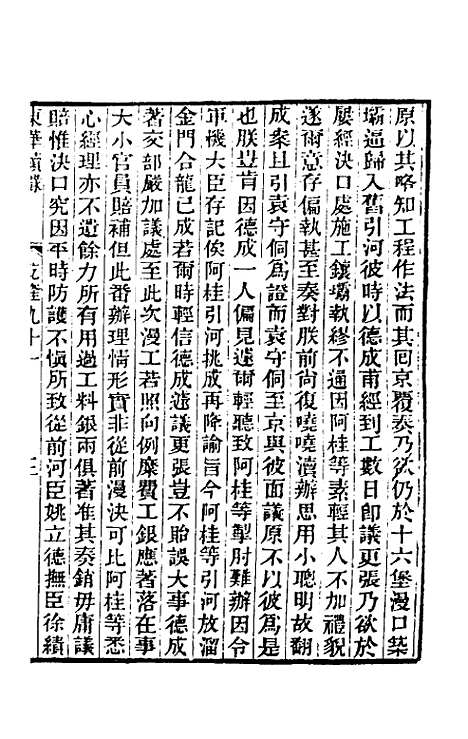 原以其略知工程作法而其囘京覆奏乃欲仍於十六堡漫口築
壩逼歸入舊引河彼時以德成甫經到工數日卽議更張乃欲於
屢經決口處施工鑲壩執繆不通因阿桂等素輕其人不加禮貌
遂爾意存偏執甚至奏對朕前尚復嘵嘵瀆辦思用小聰明故翻
成案且引袁守侗爲證而袁守侗至京與彼面議原不以彼爲是
也朕豈肯因德成一人偏見遽爾輕聽致阿桂等掣肘難辦因令
軍機大臣存記俟阿桂引河挑成再降諭旨今阿桂等引河放溜
金門合龍已成若爾時輕信德成遽議更張豈不貽誤大事德成
著交部嚴加議處至此次漫工若照向例糜費工銀應著落在事
大小官員賠補但此番辦理情形實非從前漫決可比阿桂等悉
心經理亦不遺餘力所有用過工料銀兩俱著准其奏銷毋庸議
賠惟決口究因平時防護不愼所致從前河臣姚立德撫臣徐績
東華續錄　乾隆九十一　三